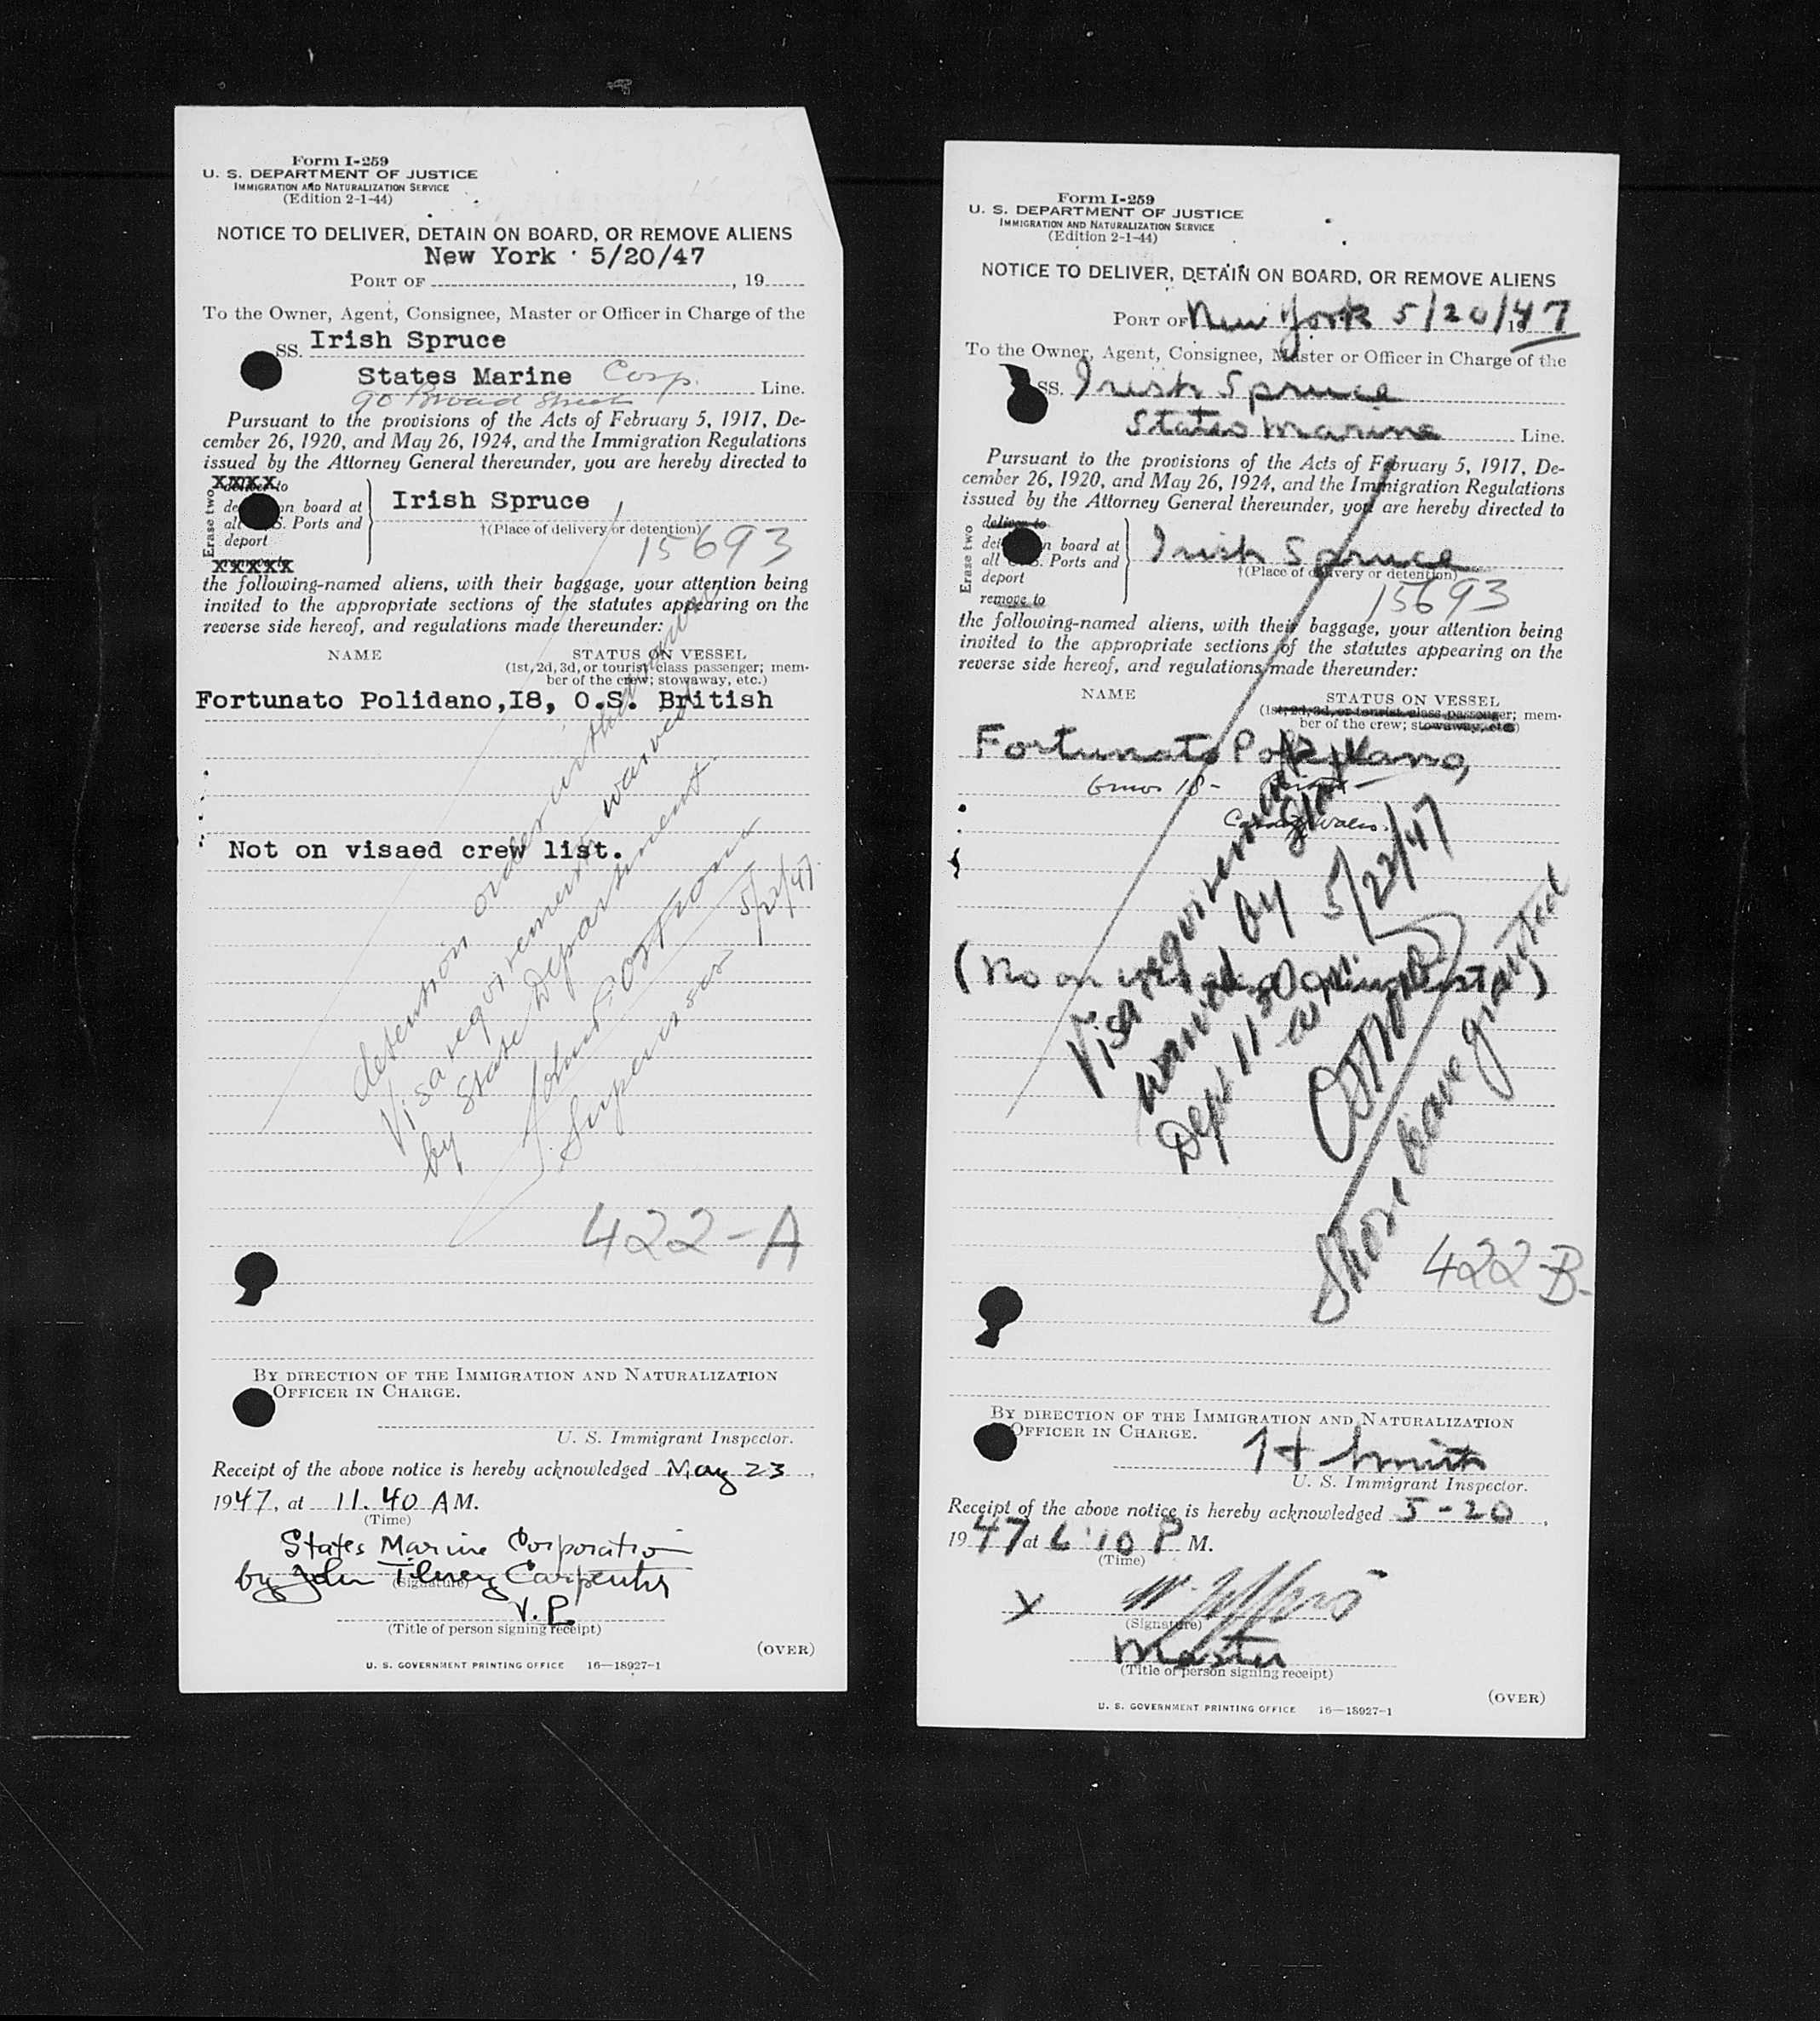 Form I-259
U. S. DEPARTMENT OF JUSTICE
IMMIGRATION AND NATURALIZATION SERVICE
(Edition 2-1-44)
NOTICE TO DELIVER, DETAIN ON BOARD, OR REMOVE ALIENS
New York 5/20/47
PORT OF , 19
To the Owner, Agent, Consignee, Master or Officer in Charge of the
SS. Irish Spruce
States Marine Corp. Line.
90 Broad Street
Pursuant to the provisions of the Acts of February 5, 1917, De-
cember 26, 1920, and May 26, 1924, and the Immigration Regulations
issued by the Attorney General thereunder, you are hereby directed to
Erase two
XXXX to
on board at
Ports and
deport
XXXXX
Irish Spruce
†(Place of delivery or detention)
15693
the following-named aliens, with their baggage, your attention being
invited to the appropriate sections of the statutes appearing on the
reverse side hereof, and regulations made thereunder:
NAME STATUS ON VESSEL
(1st, 2d, 3d, or tourist class passenger; mem-
ber of the crew; stowaway, etc.)
Fortunato Polidano,I8, O.S. British
Not on visaed crew list.
detention order withdrawn
Visa requirements waived
by State Department
John Cortrone
Supervisor 5/22/47
422-A
BY DIRECTION OF THE IMMIGRATION AND NATURALIZATION
OFFICER IN CHARGE.
U. S. Immigrant Inspector.
Receipt of the above notice is hereby acknowledged May 23,
1947, at 11.40 A M.
(Time)
States Marine Corporation
by John Tilney Carpenter
(Signature)
V. P.
(Title of person signing receipt)
(OVER)
U. S. GOVERNMENT PRINTING OFFICE 16—18927-1
Form I-259
U. S. DEPARTMENT OF JUSTICE
IMMIGRATION AND NATURALIZATION SERVICE
(Edition 2-1-44)
NOTICE TO DELIVER, DETAIN ON BOARD, OR REMOVE ALIENS
PORT OF New York 5/20/47
To the Owner, Agent, Consignee, Master or Officer in Charge of the
SS. Irish Spruce
States Marine Line.
Pursuant to the provisions of the Acts of February 5, 1917, De-
cember 26, 1920, and May 26, 1924, and the Immigration Regulations
issued by the Attorney General thereunder, you are hereby directed to
Erase two
deliver to
on board at
all Ports and
deport
remove to
Irish Spruce
†(Place of delivery or detention)
15693
the following-named aliens, with their baggage, your attention being
invited to the appropriate sections of the statutes appearing on the
reverse side hereof, and regulations made thereunder:
NAME STATUS ON VESSEL
(1st, 2d, 3d, or tourist class passenger; mem-
ber of the crew; stowaway, etc.)
Fortunato
18-
Visa requirement
waived by
Dept 11 5/22/47
Shore leave granted
422-B-
BY DIRECTION OF THE IMMIGRATION AND NATURALIZATION
OFFICER IN CHARGE.
H Smith
U. S. Immigrant Inspector.
Receipt of the above notice is hereby acknowledged 5-20,
1947 at 6:10 P M.
(Time)
X
(Signature)
Master
(Title of person signing receipt)
(OVER)
U. S. GOVERNMENT PRINTING OFFICE 16—18927-1